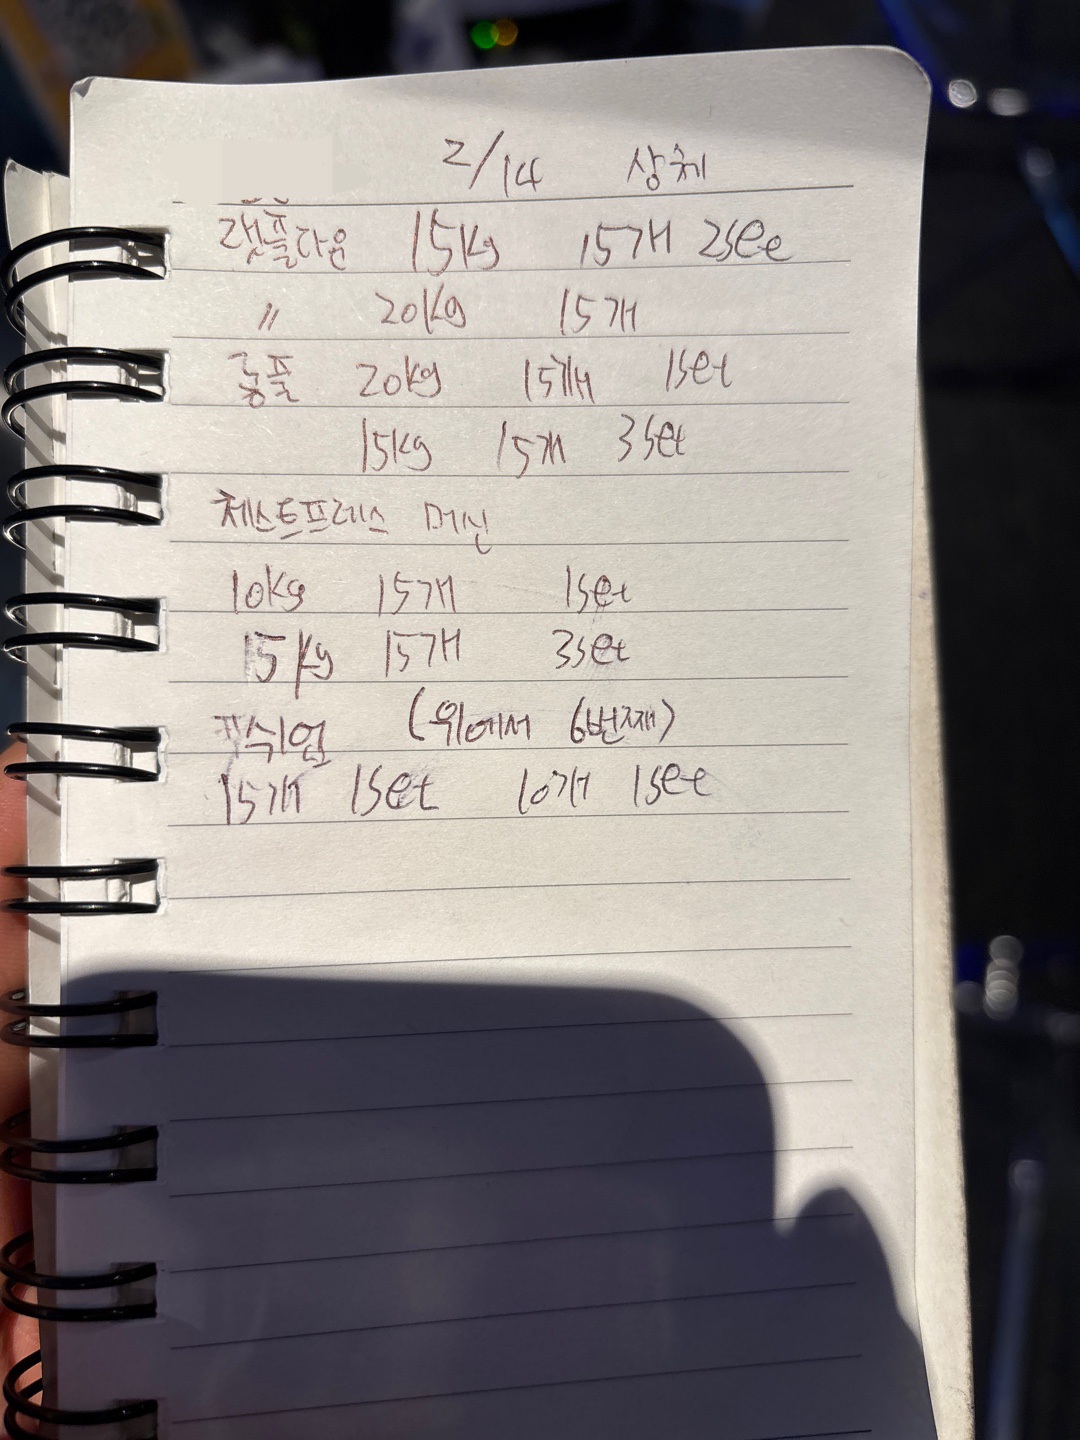 2/14 상체
랫풀다운 15kg 15개 2set
〃 20kg 15개
롱풀 20kg 15개 1set
15kg 15개 3set
체스트프레스 머신
10kg 15개 1set
15kg 15개 3set
푸쉬업 (위에서 6번째)
15개 1set 10개 1set